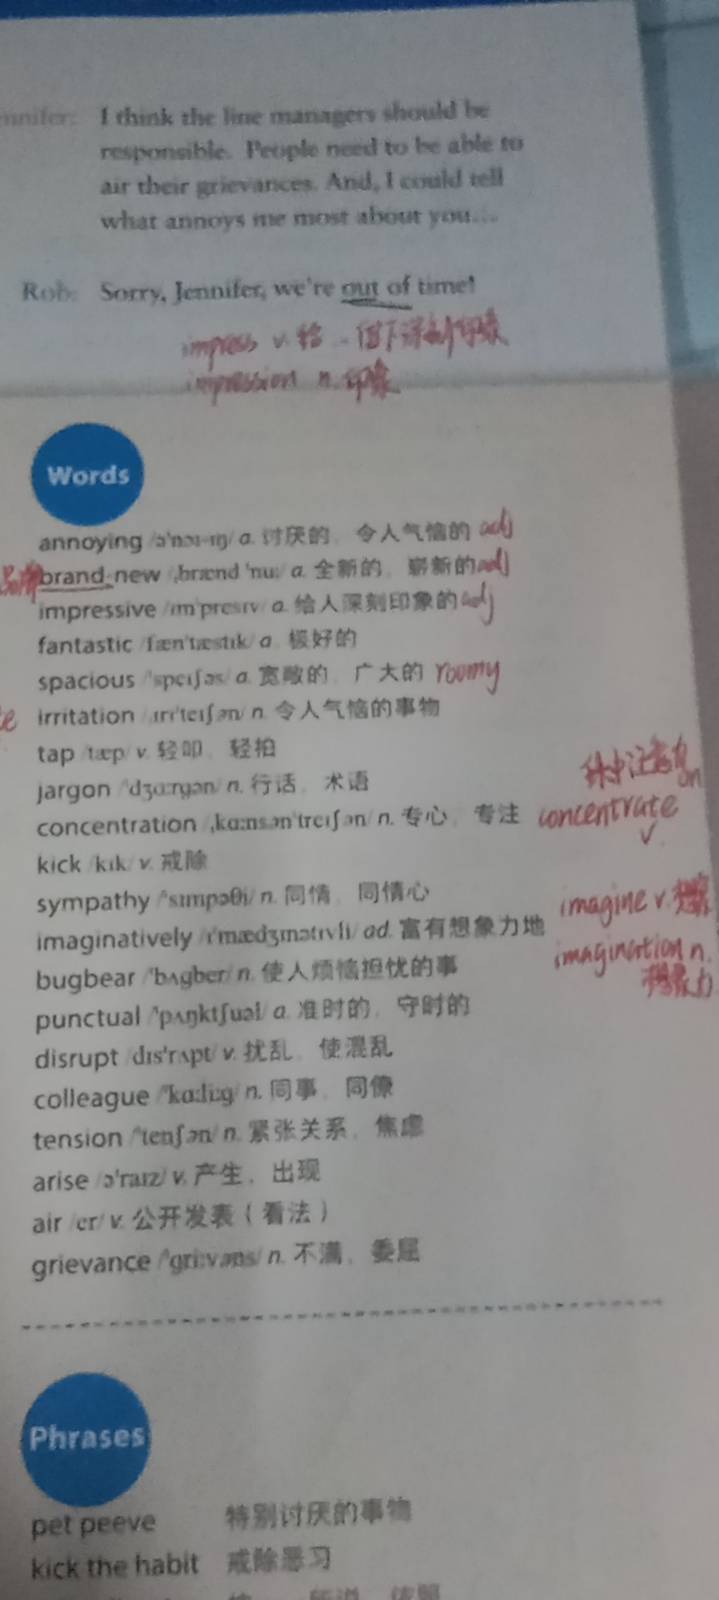 I think the line managers should be
responsible. People need to be able to
air their grievances. And, I could tell
what annoys me most about you...
Rob: Sorry, Jennifer, we're out of time!
impress v. 给...留下深刻印象
impression n. 印象
Words
annoying /ə'nɔɪ-ɪŋ/ a. 讨厌的，令人气恼的 adj
brand-new /ˌbrænd 'nuː/ a. 全新的，崭新的 adj
impressive /ɪm'presɪv/ a. 给人深刻印象的 adj
fantastic /fæn'tæstɪk/ a. 极好的
spacious /'speɪʃəs/ a. 宽敞的，广大的 roomy
irritation /ˌɪrɪ'teɪʃən/ n. 令人气恼的事物
tap /tæp/ v. 轻叩，轻拍
jargon /'dʒɑːrgən/ n. 行话，术语
concentration /ˌkɑːnsən'treɪʃən/ n. 专心，专注 concentrate
v.
on
kick /kɪk/ v. 戒除
sympathy /'sɪmpəθi/ n. 同情，同情心
imagine v.
imaginatively /ɪ'mædʒɪnətɪvli/ ad. 富有想象力地
imagination n.
想象力
bugbear /'bʌgber/ n. 使人烦恼担忧的事
punctual /'pʌŋktʃuəl/ a. 准时的，守时的
disrupt /dɪs'rʌpt/ v. 扰乱，使混乱
colleague /'kɑːliːg/ n. 同事，同僚
tension /'tenʃən/ n. 紧张关系，焦虑
arise /ə'raɪz/ v. 产生，出现
air /er/ v. 公开发表（看法）
grievance /'griːvəns/ n. 不满，委屈
Phrases
pet peeve 特别讨厌的事物
kick the habit 戒除恶习